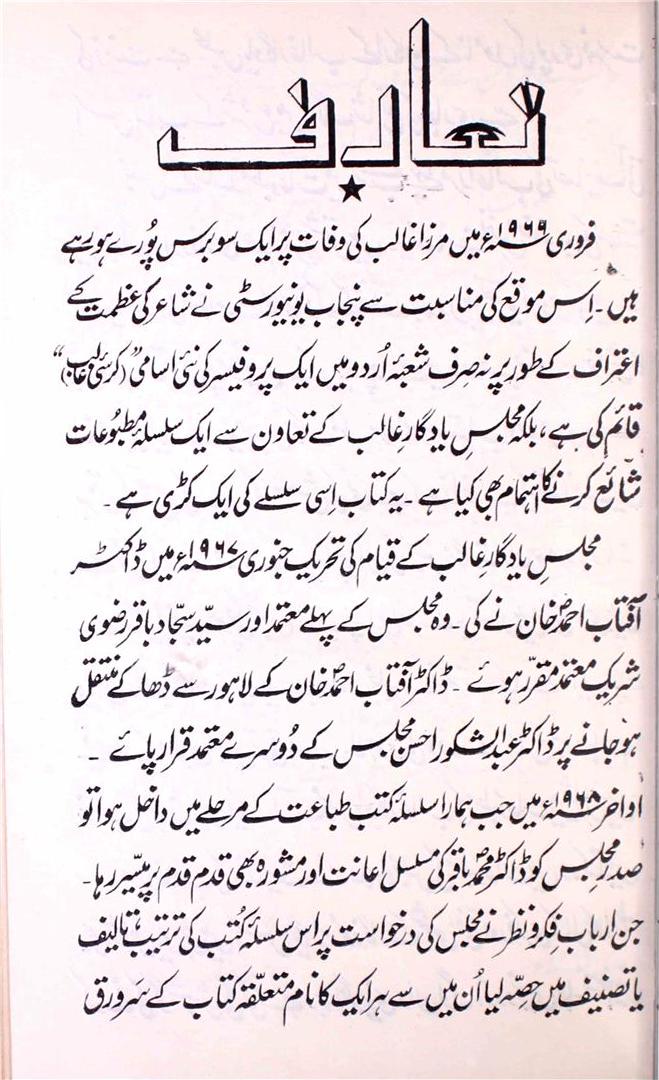 تعارف
فروری ۱۹۶۹ء میں مرزا غالب کی وفات پر ایک سو برس پُورے ہو رہے
ہیں۔ اِس موقع کی مناسبت سے پنجاب یونیورسٹی نے شاعر کی عظمت کے
اعتراف کے طور پر نہ صِرف شعبۂ اُردو میں ایک پروفیسر کی نئی اسامی (”کرسیٔ غالب“)
قائم کی ہے، بلکہ مجلسِ یادگارِ غالب کے تعاون سے ایک سلسلۂ مطبُوعات
شائع کرنے کا اہتمام بھی کیا ہے۔ یہ کتاب اِسی سلسلے کی ایک کڑی ہے۔
مجلسِ یادگارِ غالب کے قیام کی تحریک جنوری ۱۹۶۷ء میں ڈاکٹر
آفتاب احمد خان نے کی۔ وہ مجلس کے پہلے معتمد اور سیّد سجّاد باقر رضوی
شریک معتمد مقرّر ہوئے۔ ڈاکٹر آفتاب احمد خان کے لاہور سے ڈھاکے منتقل
ہو جانے پر ڈاکٹر عبدالشکور احسن مجلس کے دُوسرے معتمد قرار پائے۔
اواخر ۱۹۶۸ء میں جب ہمارا سلسلۂ کتب طباعت کے مرحلے میں داخل ہوا تو
صدرِ مجلس کو ڈاکٹر محمد باقر کی مسلسل اعانت اور مشورہ بھی قدم قدم پر میسّر رہا۔
جن اربابِ فِکر و نظر نے مجلس کی درخواست پر اس سلسلۂ کُتب کی ترتیب، تالیف
یا تصنیف میں حِصّہ لیا اُن میں سے ہر ایک کا نام متعلّقہ کتاب کے سَرورق